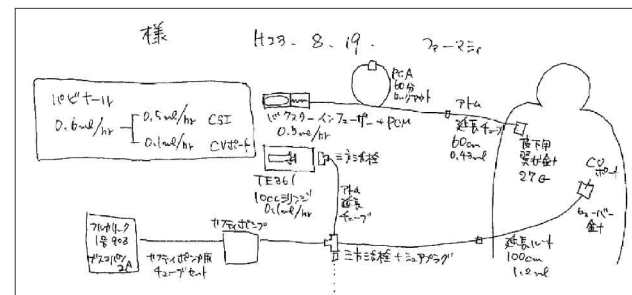 様
H23. 8. 19.
ファーマシィ
パビナール
0.6ml/hr
0.5ml/hr CSI
0.1ml/hr CVポート
PCA
60分
ロックアウト
バクスターインフューザー + PCM
0.5ml/hr
アトム
延長チューブ
60cm
0.43ml
皮下用
翼状針
27G
CV
ポート
ヒューバー
針
TE361
10ccシリンジ
0.1ml/hr
三方活栓
アトム
延長
チューブ
フルカリック
1号 903
ブスコパン
2A
カフティポンプ
カフティポンプ用
チューブセット
三方活栓 + シュアプラグ
延長ルート
100cm
1.2ml